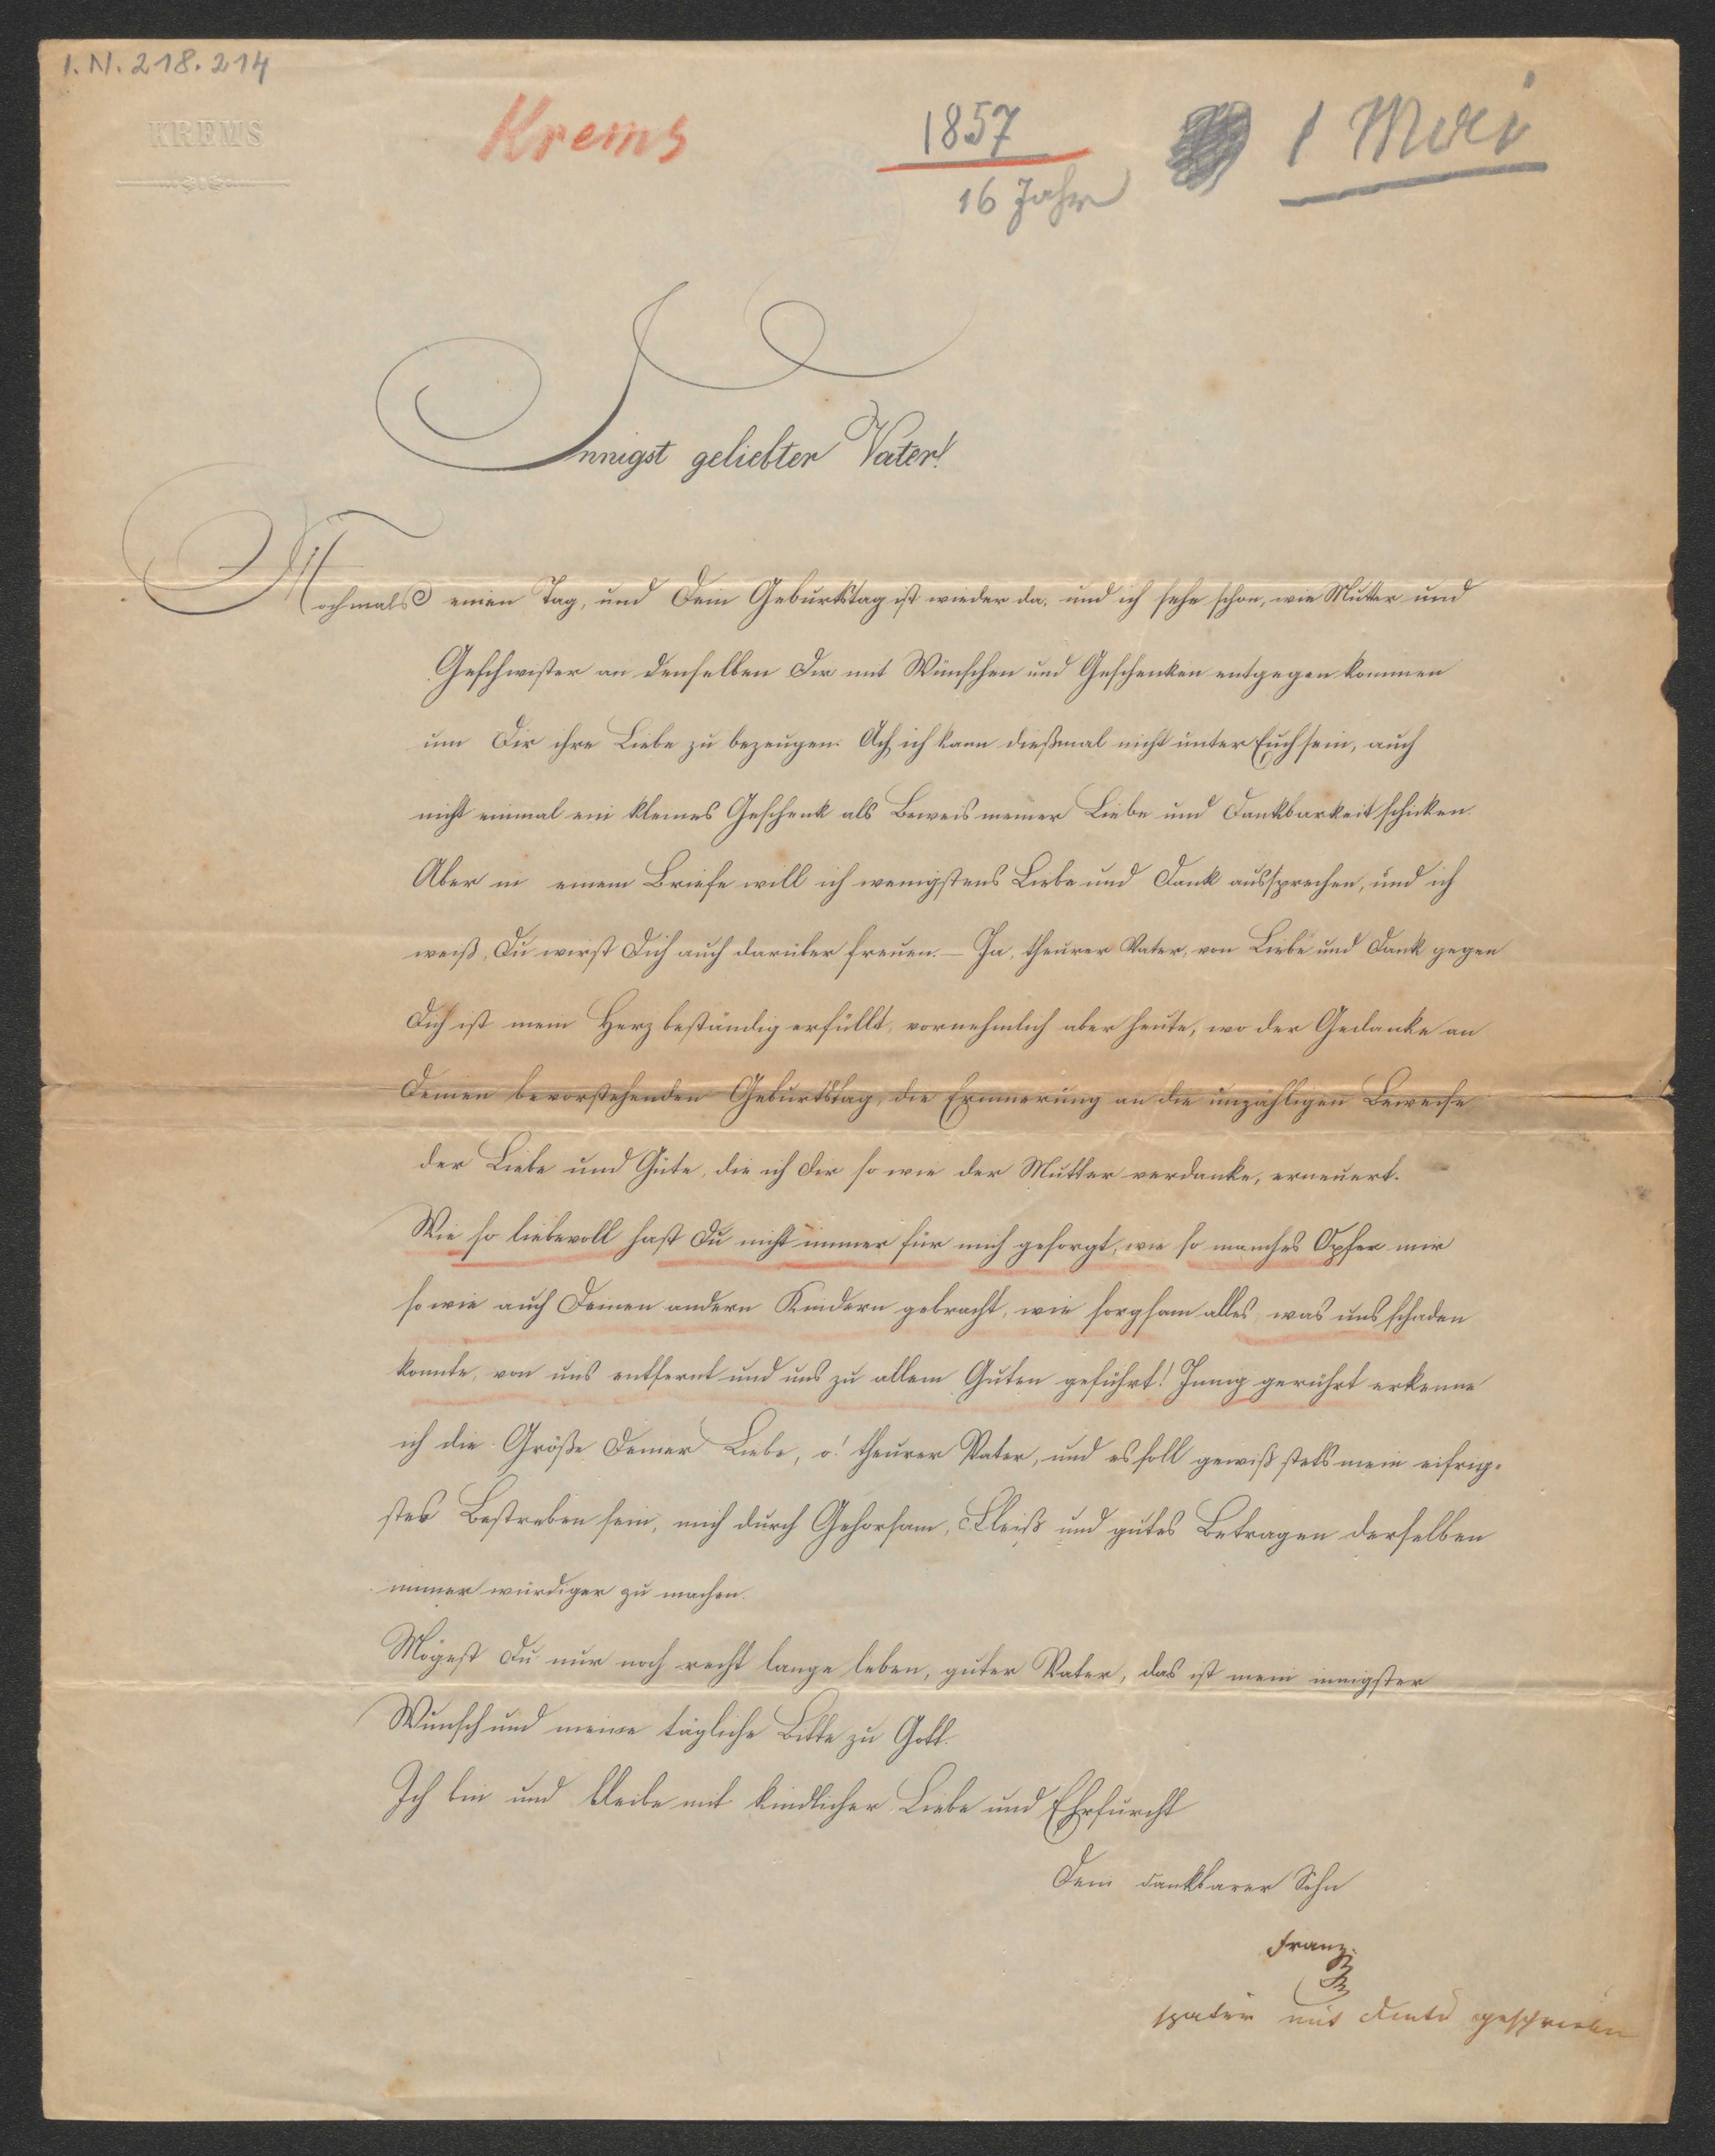 I. N. 218.214
KREMS
Krems
1857
1 Mai
16 Jahr
Innigst geliebter Vater!
Nochmals einen Tag, und Dein Geburtstag ist wieder da, und ich sehe schon, wie Mutter und
Geschwister an denselben Dir mit Wünschen und Geschenken entgegen kommen
um Dir ihre Liebe zu bezeugen. Ach ich kann dießmal nicht unter Euch sein, auch
nicht einmal ein kleines Geschenk als Beweis meiner Liebe und Dankbarkeit schicken.
Aber in einem Briefe will ich wenigstens Liebe und Dank aussprechen, und ich
weiß, Du wirst Dich auch darüber freuen. – Ja, theurer Vater, von Liebe und Dank gegen
Dich ist mein Herz beständig erfüllt, vornehmlich aber heute, wo der Gedanke an
Deinen bevorstehenden Geburtstag, die Erinnerung an die unzähligen Beweise
der Liebe und Güte, die ich Dir so wie der Mutter verdanke, erneuert.
Wie so liebevoll hast Du nicht immer für mich gesorgt, wie so manches Opfer mir
so wie auch Deinen andern Kindern gebracht, wie sorgsam alles, was uns schaden
konnte, von uns entfernt und uns zu allem Guten geführt! Innig gerührt erkenne
ich die Größe Deiner Liebe, o! theurer Vater, und es soll gewiß stets mein eifrig-
stes Bestreben sein, mich durch Gehorsam, Fleiß und gutes Betragen derselben
immer würdiger zu machen.
Mögest Du nur noch recht lange leben, guter Vater, das ist mein innigster
Wunsch und meine tägliche Bitte zu Gott.
Ich bin und bleibe mit kindlicher Liebe und Ehrfurcht
Dein dankbarer Sohn
Franz.
später mit Tinte geschrieben